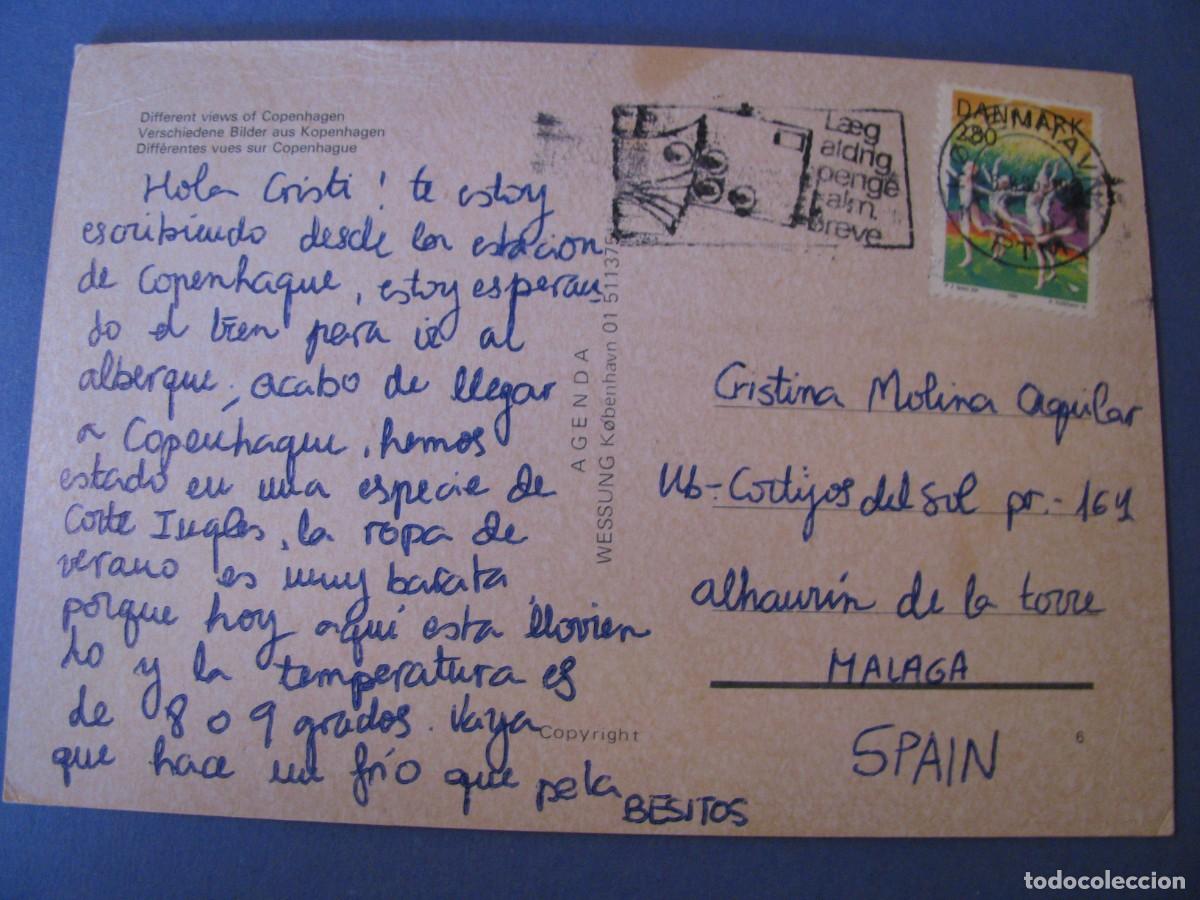 Different views of Copenhagen
Verschiedene Bilder aus Kopenhagen
Différentes vues sur Copenhague
Hola Cristi! te estoy
escribiendo desde la estacion
de Copenhague, estoy esperan
do el tren para ir al
albergue, acabo de llegar
a Copenhague, hemos
estado en una especie de
Corte Ingles, la ropa de
verano es muy barata
porque hoy aquí esta llovien
do y la temperatura es
de 8 o 9 grados. Vaya
que hace un frío que pela
BESITOS
AGENDA
WESSUNG København 01 511375
Copyright
Læg
aldrig
penge
i alm.
breve
DANMARK
280
Cristina Molina Aguilar
Ub-Cortijos del Sol pr.-161
alhaurín de la torre
MALAGA
SPAIN
6
todocoleccion